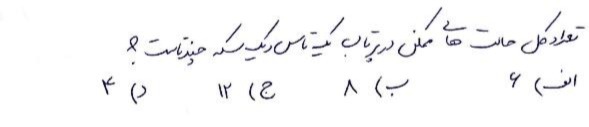 تعداد کل حالت هایی ممکن در پرتاب یک تاس و یک سکه چندتاست؟
الف) ۶ ب) ۸ ج) ۱۲ د) ۴